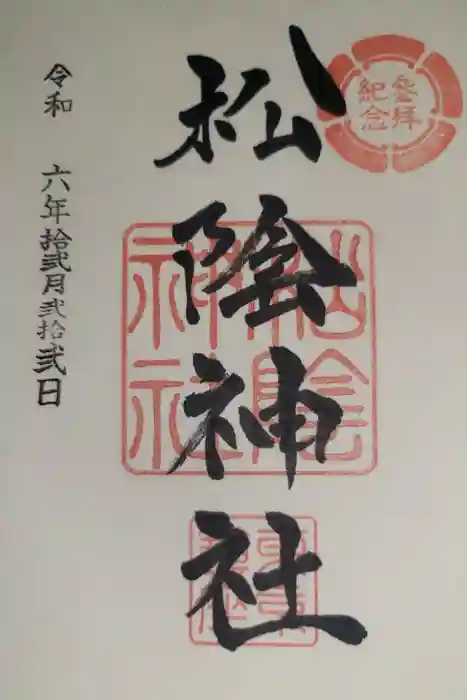 参拝
紀念
松陰神社
松陰
神社
令和 六年拾弐月弐拾弐日